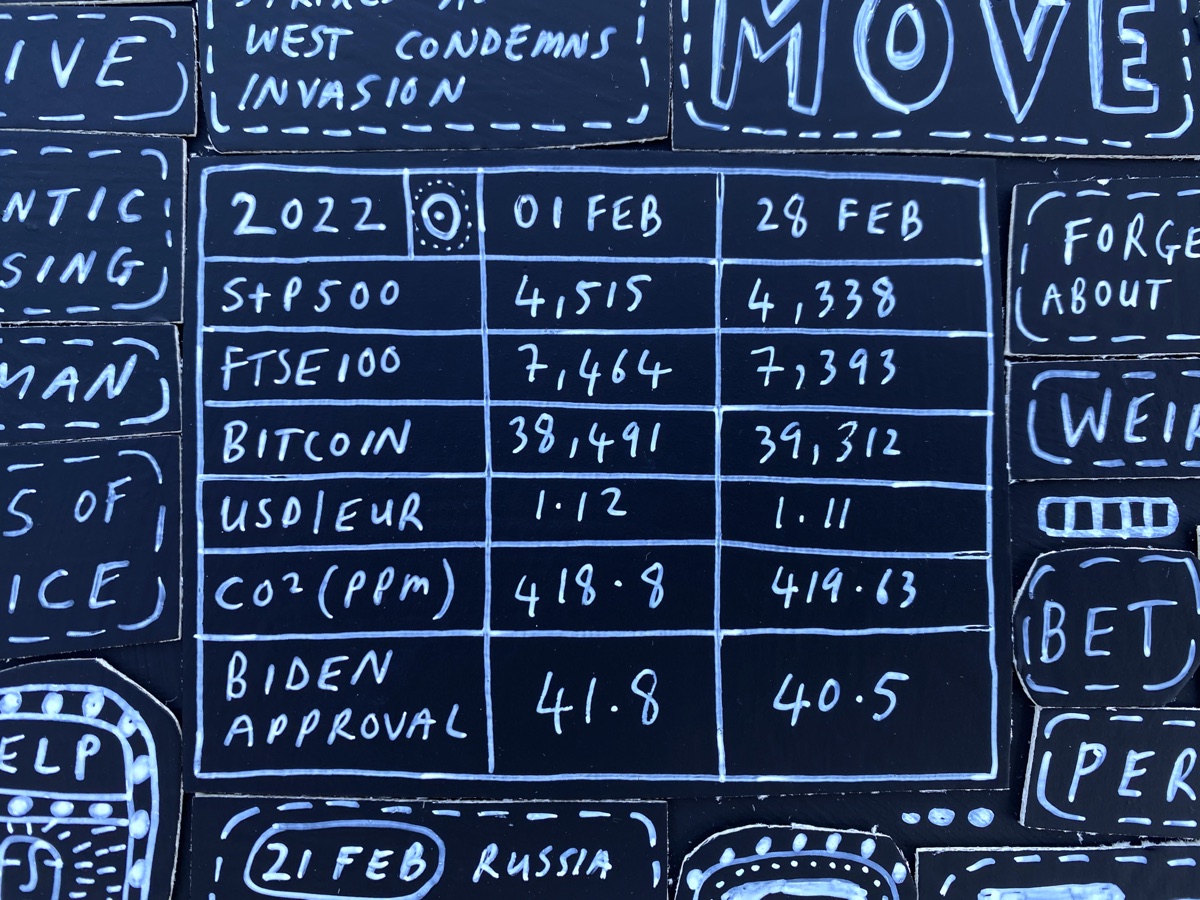 WEST CONDEMNS
INVASION
MOVE
2022 01 FEB 28 FEB
S+P500 4,515 4,338
FTSE100 7,464 7,393
BITCOIN 38,491 39,312
USD/EUR 1.12 1.11
CO² (PPM) 418.8 419.63
BIDEN
APPROVAL 41.8 40.5
IVE
NTIC
SING
MAN
S OF
ICE
ELP
FORGE
ABOUT
WEIR
BET
PER
21 FEB RUSSIA